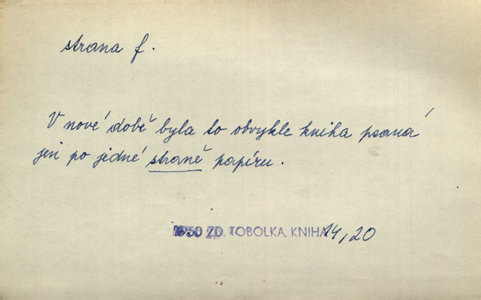 strana f.
V nové době byla to obvykle kniha psaná
jen po jedné straně papíru.
1950 ZD. TOBOLKA, KNIHA 14,20